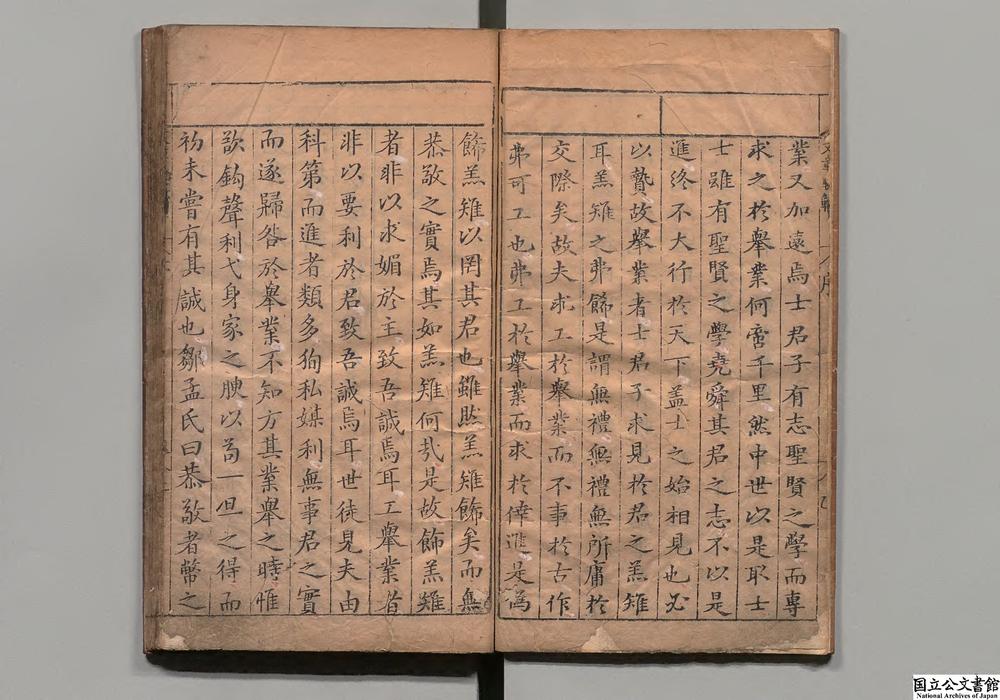 業又加遠焉士君子有志聖賢之學而專
求之於舉業何啻千里然中世以是取士
士雖有聖賢之學堯舜其君之志不以是
進終不大行於天下盖士之始相見也必
以贄故舉業者士君子求見於君之羔雉
耳羔雉之弗飾是謂無禮無禮無所庸於
交際矣故夫求工於舉業而不事於古作
弗可工也弗工於舉業而求於倖進是偽
飾羔雉以罔其君也雖然羔雉飾矣而無
恭敬之實焉其如羔雉何㢤是故飾羔雉
者非以求媚於主致吾誠焉耳工舉業者
非以要利於君致吾誠焉耳世徒見夫由
科第而進者類多狥私媒利無事君之實
而遂歸咎於舉業不知方其業舉之時惟
欲鈎聲利弋身家之腴以苟一旦之得而
初未嘗有其誠也鄒孟氏曰恭敬者幣之
国立公文書館
National Archives of Japan